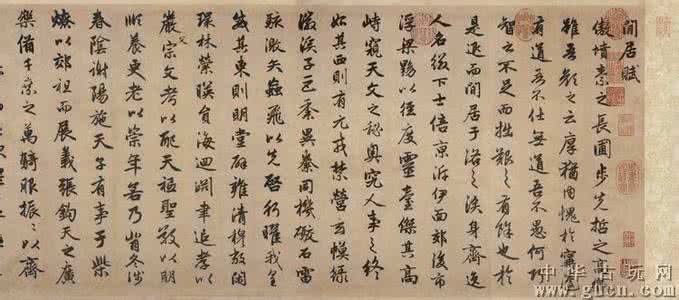 閒居賦
傲墳素之長圃步先哲之高
雖吾顏之云厚猶內愧於甯
有道吾不仕無道吾不愚何巧
智之不足而拙艱之有餘也於
是退而閒居于洛之涘身齊逸
人名綴下士倍京泝伊面郊後市
浮梁黝以徑度靈臺傑其高
峙窺天文之秘奧究人事之終
始其西則有元戎禁營玄幙綠
徽溪子巨黍異絭同機礮石雷
駭激矢蝱飛以先啓行曜我皇
威其東則明堂辟雍清穆敞閑
環林縈映圓海迴淵聿追孝以
嚴父宗文考以配天祗聖敬以明
順養更老以崇年若乃背冬涉
春陰謝陽施天子有事于柴
燎以郊祖而展義張鈞天之廣
樂備千乘之萬騎服振々以齊
中华古玩网
www.gucn.com